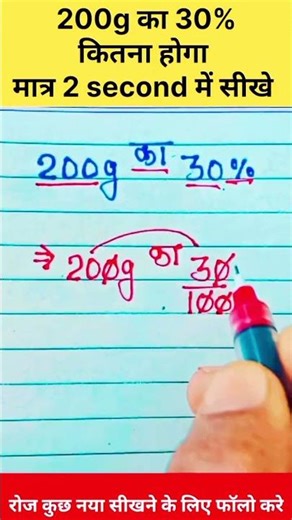 200g का 30%
कितना होगा
मात्र 2 second में सीखे
200g का 30%
⇒ 200g का 30/100
रोज कुछ नया सीखने के लिए फॉलो करे